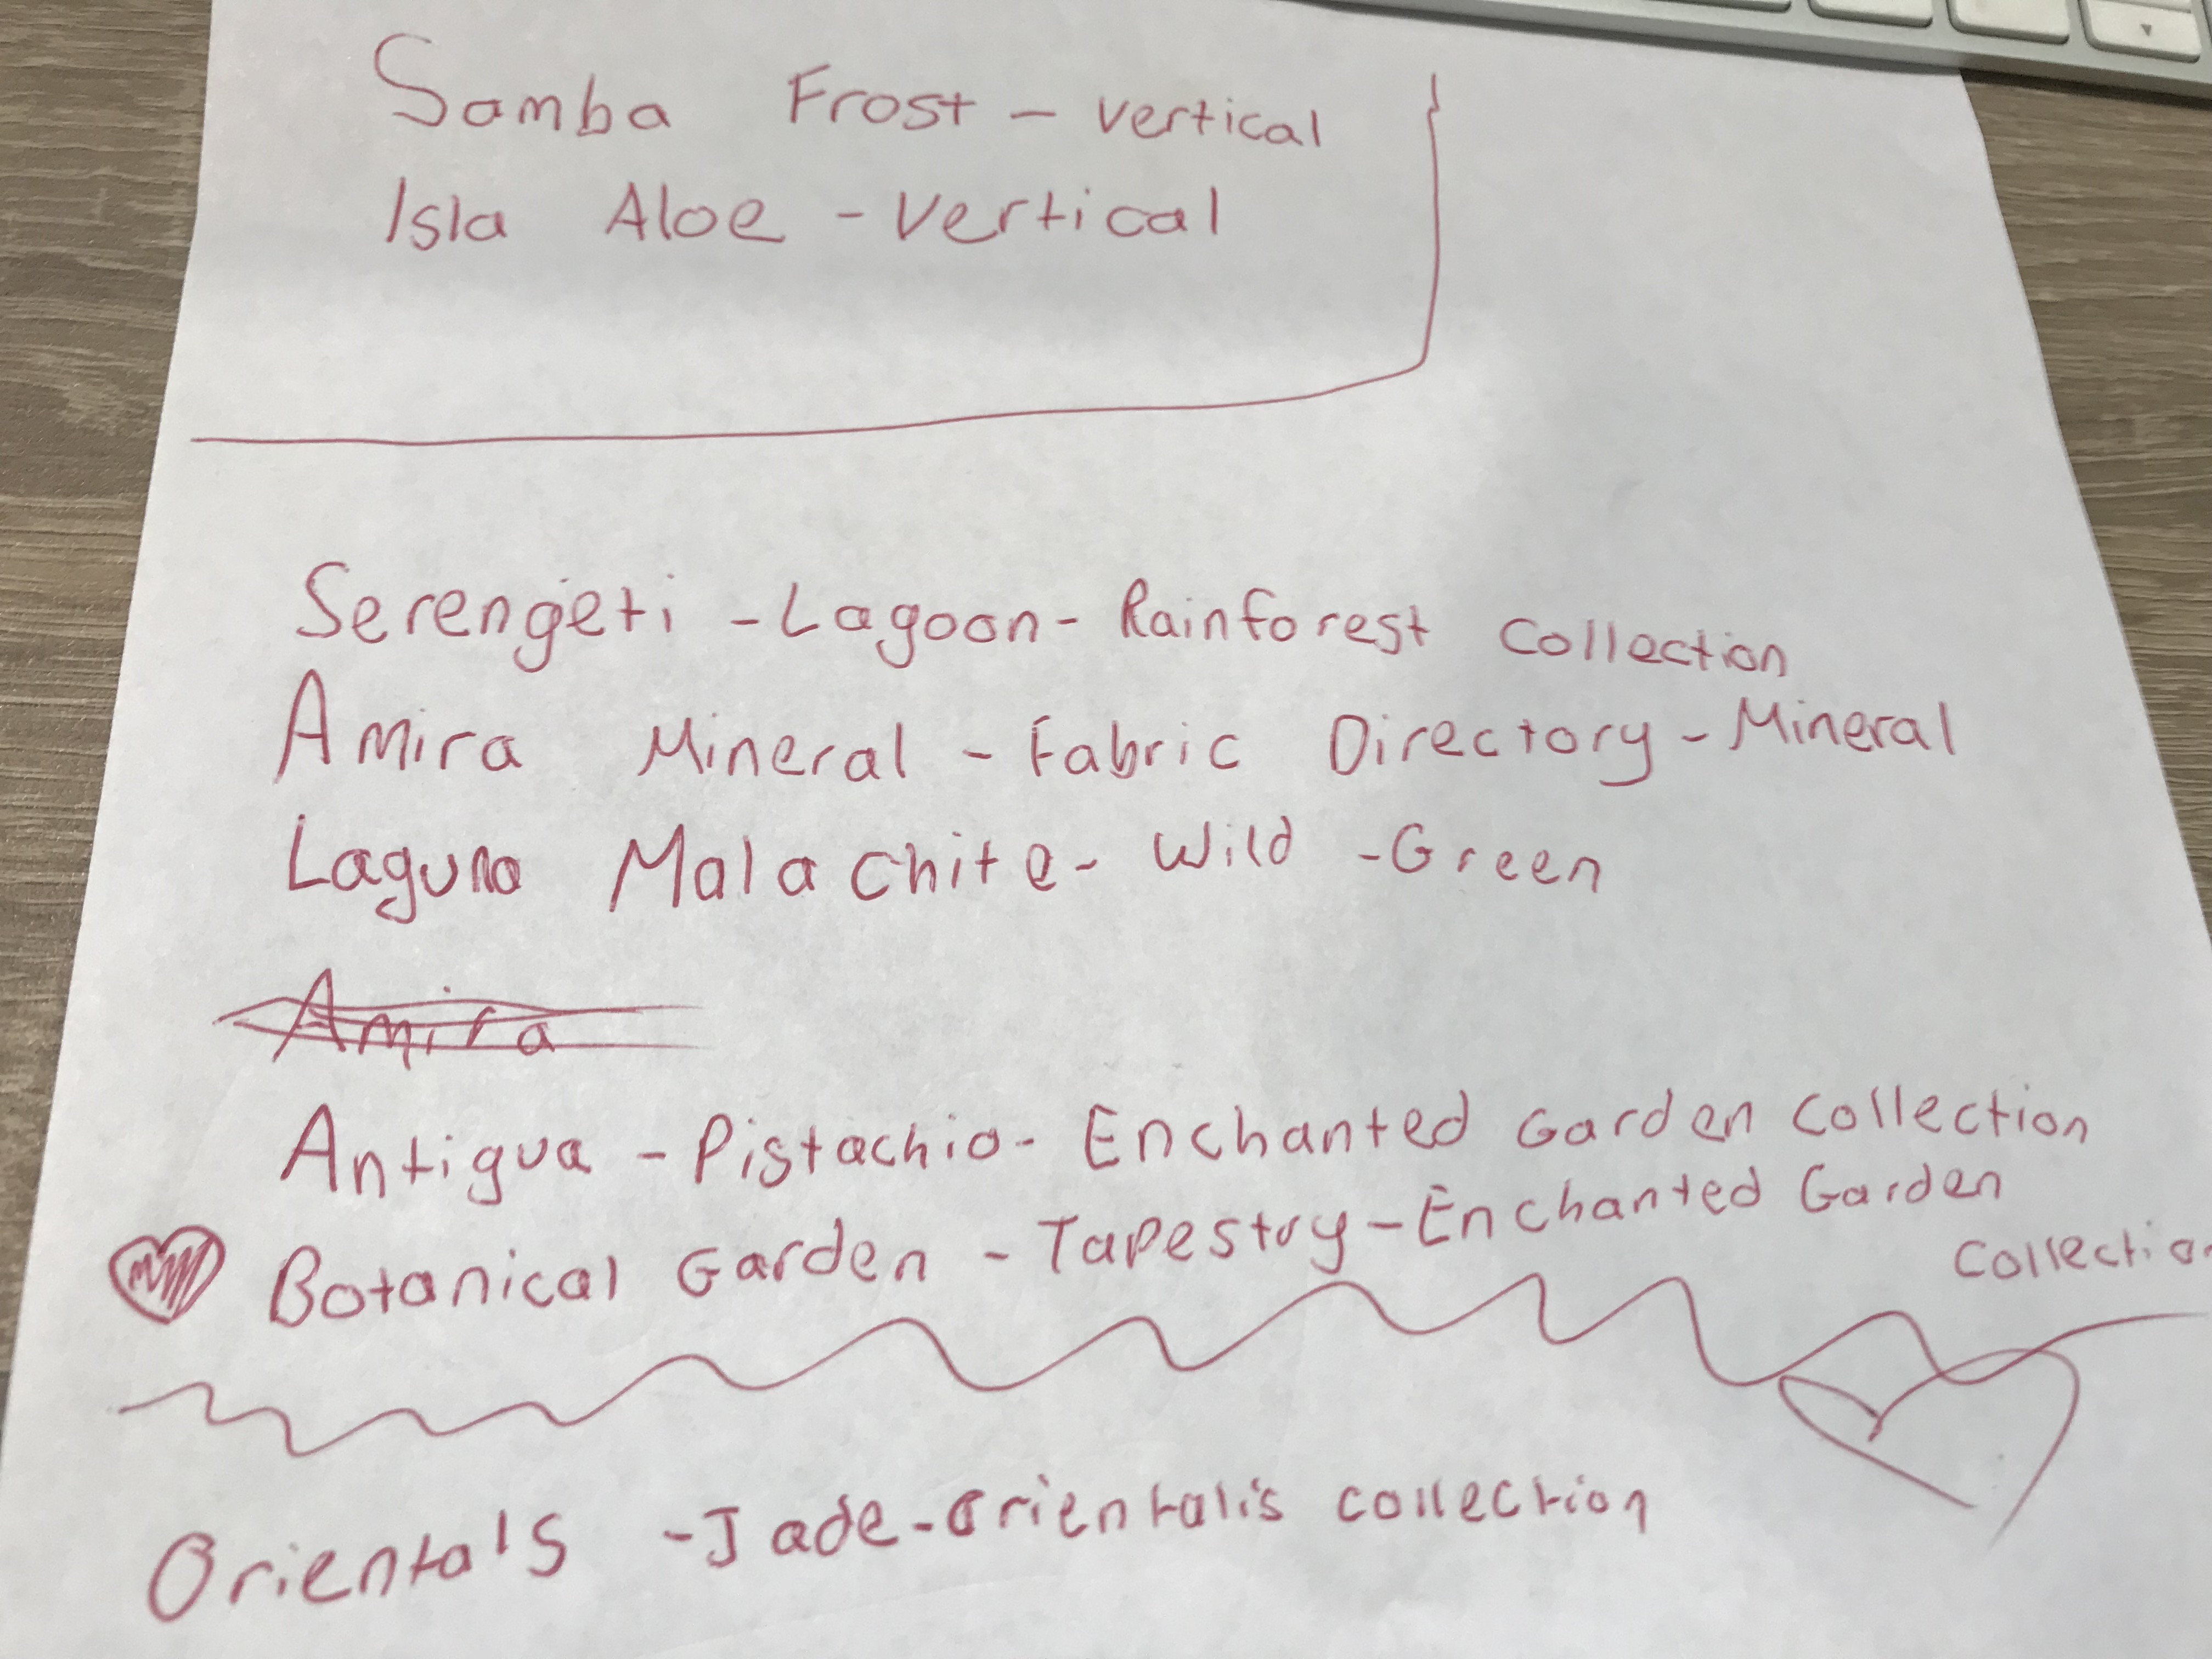 Samba Frost - vertical
Isla Aloe - Vertical
Serengeti - Lagoon - Rainforest Collection
Amira Mineral - Fabric Directory - Mineral
Laguna Malachite - Wild - Green
Amira
Antigua - Pistachio - Enchanted Garden Collection
Botanical Garden - Tapestry - Enchanted Garden
Collection
Orientals - Jade - Orientalis collection